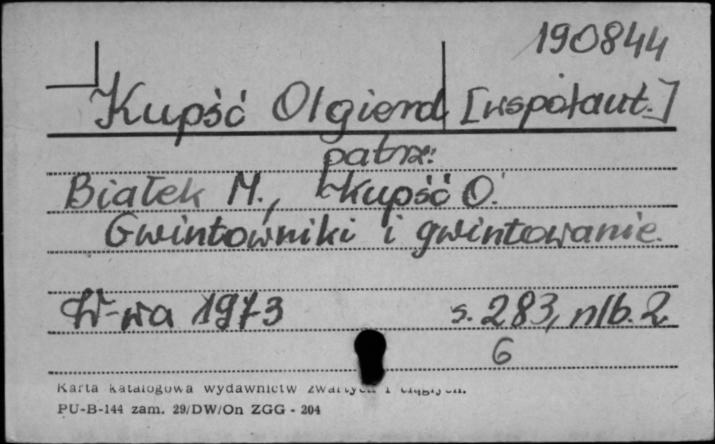 190844
Kupść Olgierd [współaut.]
patrz:
Białek M., Kupść O.
Gwintowniki i gwintowanie.
W-wa 1973 s. 283, nlb. 2
6
Karta katalogowa wydawnictw zwartych i ciągłych.
PU-B-144 zam. 29/DW/On ZGG - 204